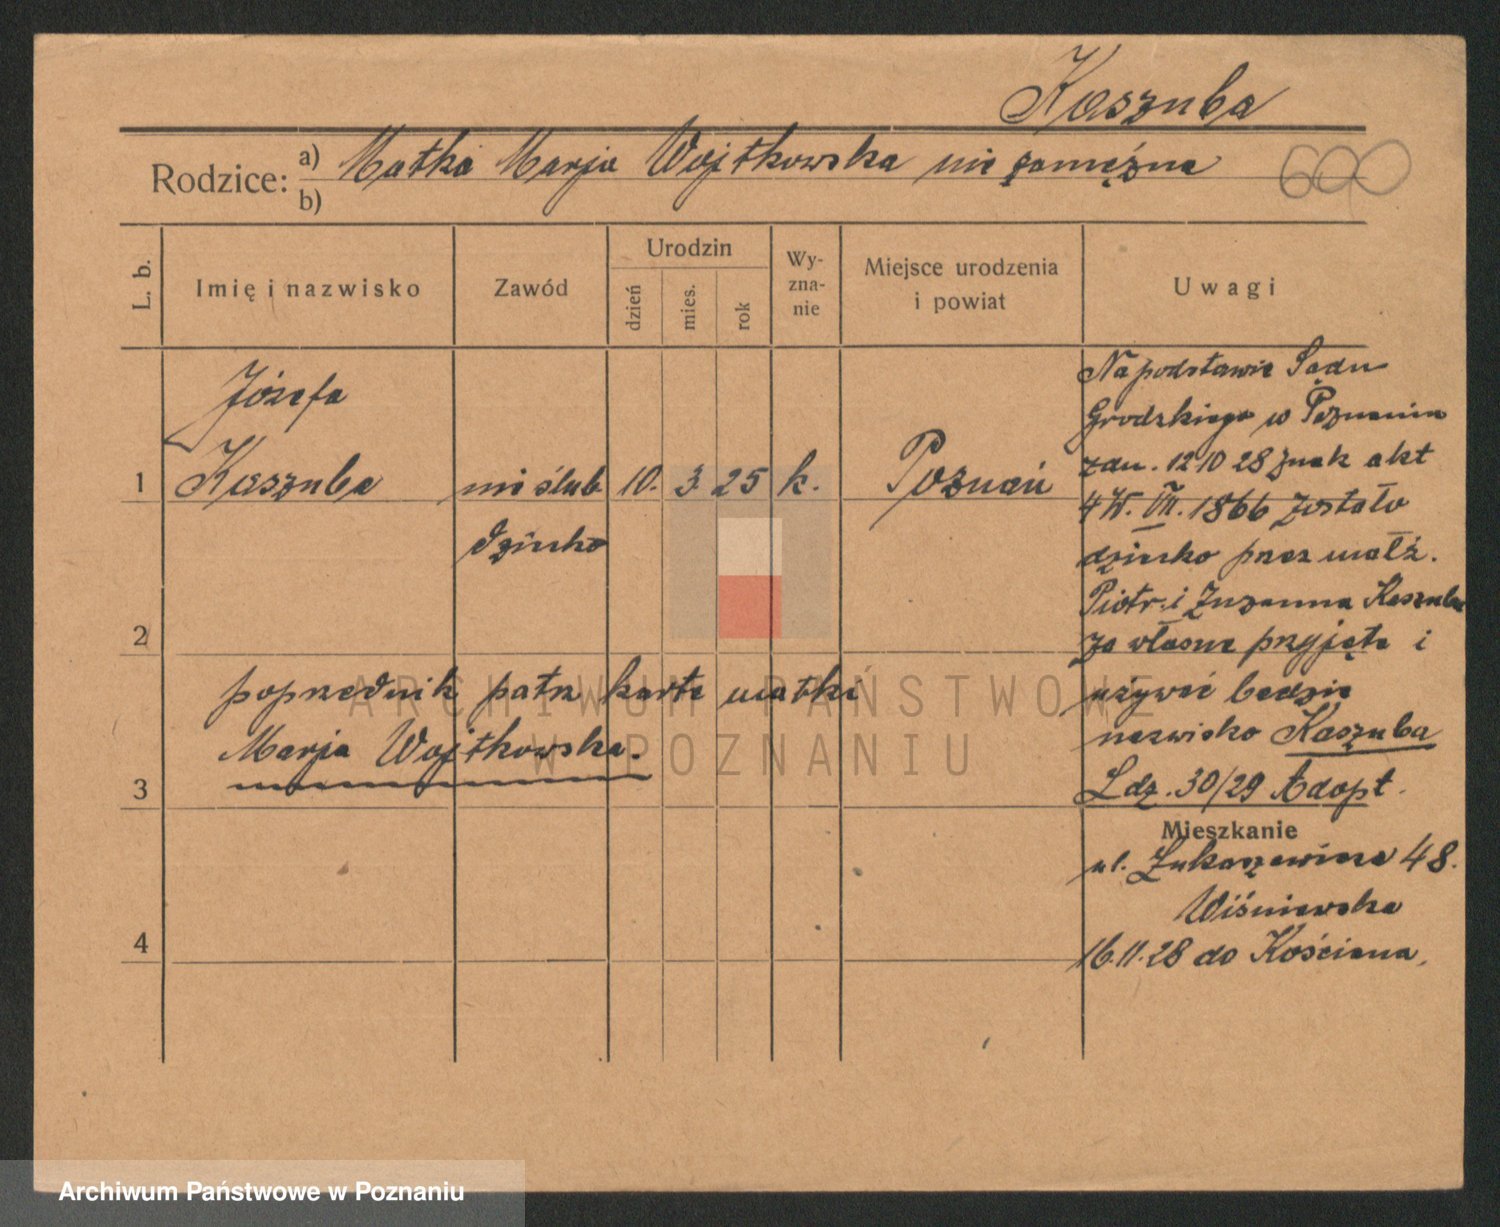 Kaszuba
Rodzice: a) Matka Marja Wojtkowska nie zamężna
b)
600
L. b. Imię i nazwisko Zawód Urodzin dzień mies. rok Wy-zna-nie Miejsce urodzenia i powiat Uwagi
Józefa
1 Kaszuba nie ślub. 10. 3. 25 k. Poznań
dziecko
2
poprzednik patrz karta matki
Marja Wojtkowska.
3
4
Na podstawie Sądu
Grodzkiego w Poznaniu
z dn. 12 10 28 znak akt
4 W. VII. 1866 zostało
dziecko przez małż.
Piotr i Zuzanna Kaszuba
za własne przyjęte i
używać będzie
nazwisko Kaszuba
L dz. 30/29 Adopt.
Mieszkanie
ul. Łukaszewicza 48.
Wiśniewska
16.11.28 do Kościana.
ARCHIWUM PAŃSTWOWE
W POZNANIU
Archiwum Państwowe w Poznaniu